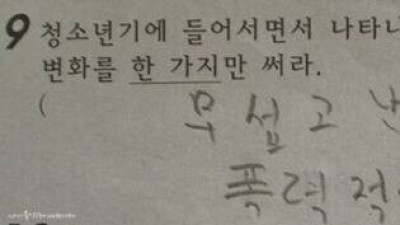 9 청소년기에 들어서면서 나타나
변화를 한 가지만 써라.
( 무섭고 난
폭력적